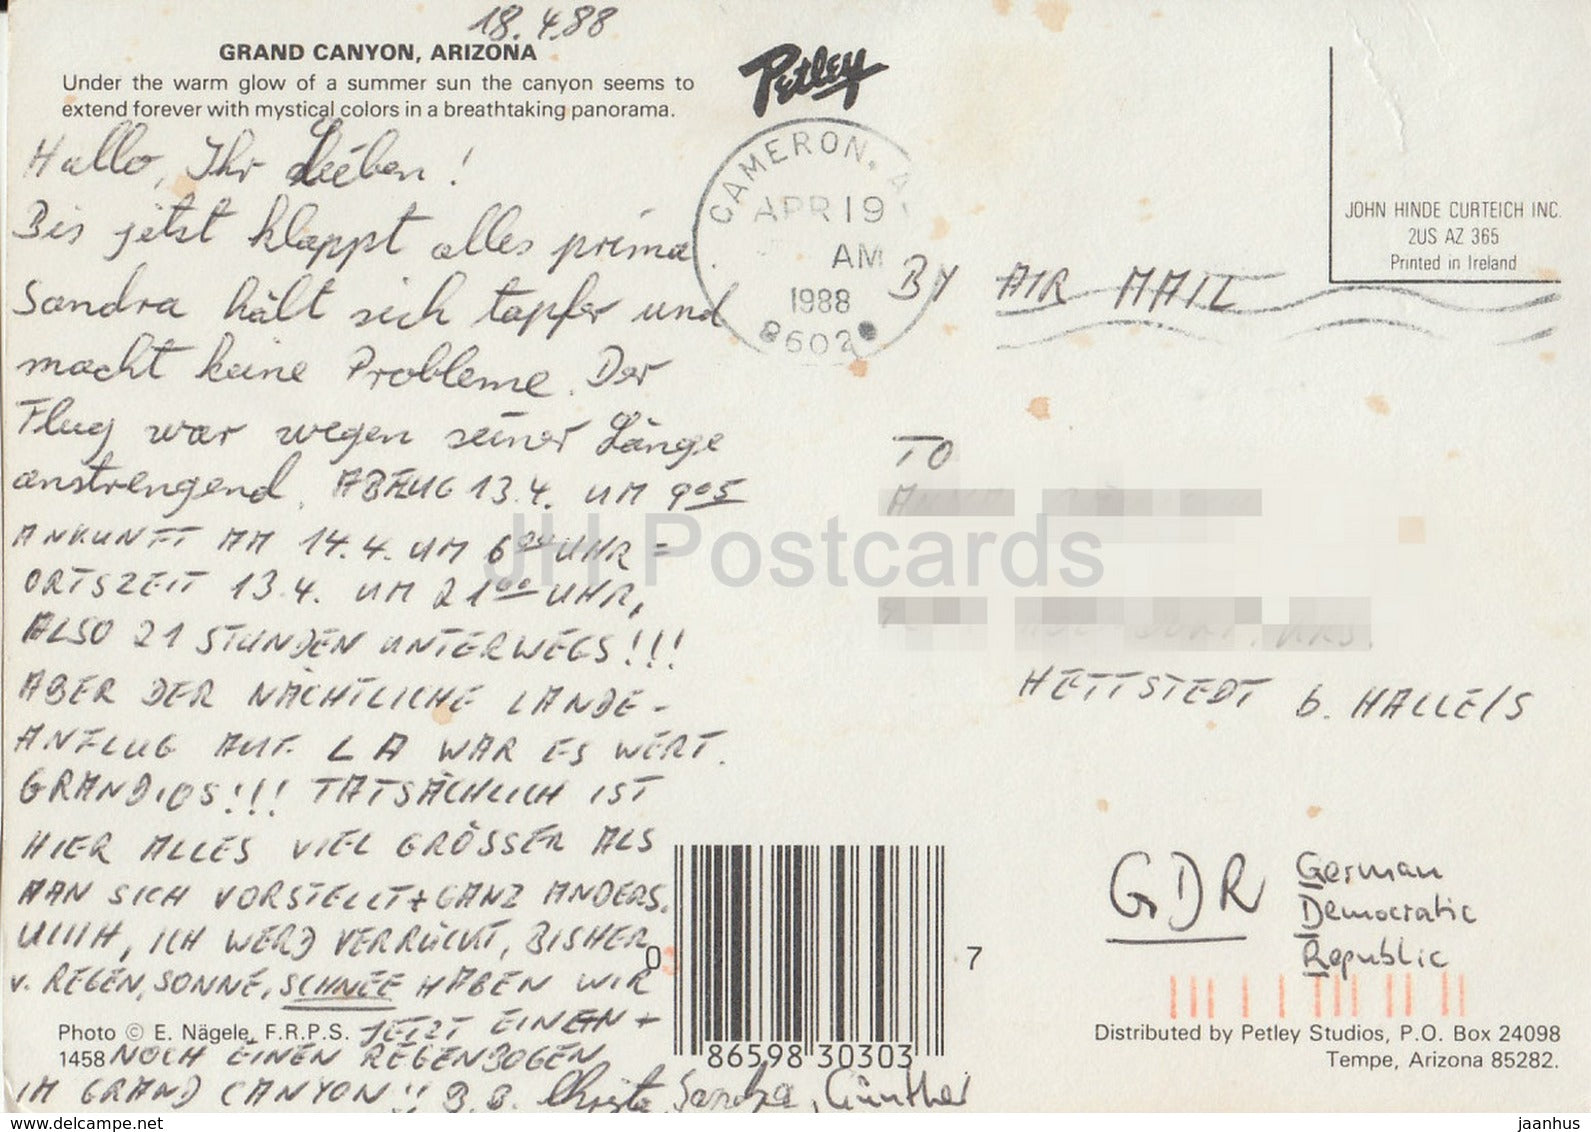 18.4.88
GRAND CANYON, ARIZONA
Under the warm glow of a summer sun the canyon seems to
extend forever with mystical colors in a breathtaking panorama.
Hallo, Ihr Lieben!
Bis jetzt klappt alles prima.
Sandra hält sich tapfer und
macht keine Probleme. Der
Flug war wegen seiner Länge
anstrengend. ABFLUG 13.4. UM 9 05
ANKUNFT AM 14.4. UM 6 00 UHR =
ORTSZEIT 13.4. UM 21 00 UHR,
ALSO 21 STUNDEN UNTERWEGS!!!
ABER DER NÄCHTLICHE LANDE-
ANFLUG AUF LA WAR ES WERT.
GRANDIOS!!! TATSÄCHLICH IST
HIER ALLES VIEL GRÖSSER ALS
MAN SICH VORSTELLT + GANZ ANDERS.
UIIIH, ICH WERD VERRÜCKT, BISHER
v. REGEN, SONNE, SCHNEE HABEN WIR
JETZT EINEN +
Photo © E. Nägele, F.R.P.S.
1458
NOCH EINEN REGENBOGEN
IM GRAND CANYON!! Christa, Sandra, Günther
Petley
CAMERON, A
APR 19
AM
1988
8602
BY AIR MAIL
JOHN HINDE CURTEICH INC.
2US AZ 365
Printed in Ireland
TO
HETTSTEDT b. HALLE/S
GDR
German
Democratic
Republic
0 86598 30303 7
Distributed by Petley Studios, P.O. Box 24098
Tempe, Arizona 85282.
JH Postcards
www.delcampe.net
jaanhus